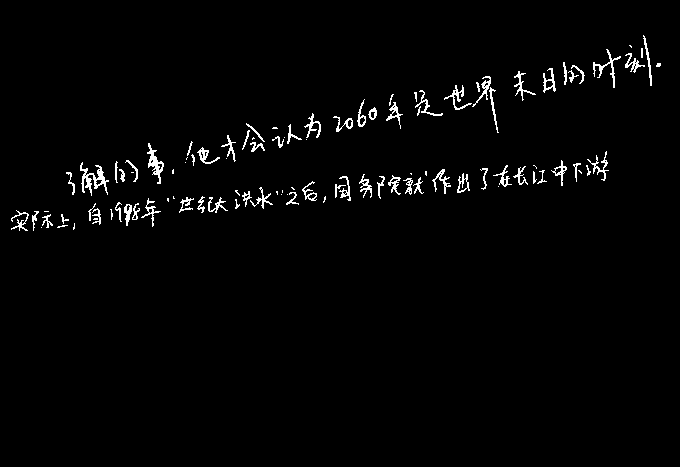 了解的事，他才会认为2060年是世界末日的时刻．
实际上，自1998年“世纪大洪水”之后，国务院就作出了在长江中下游